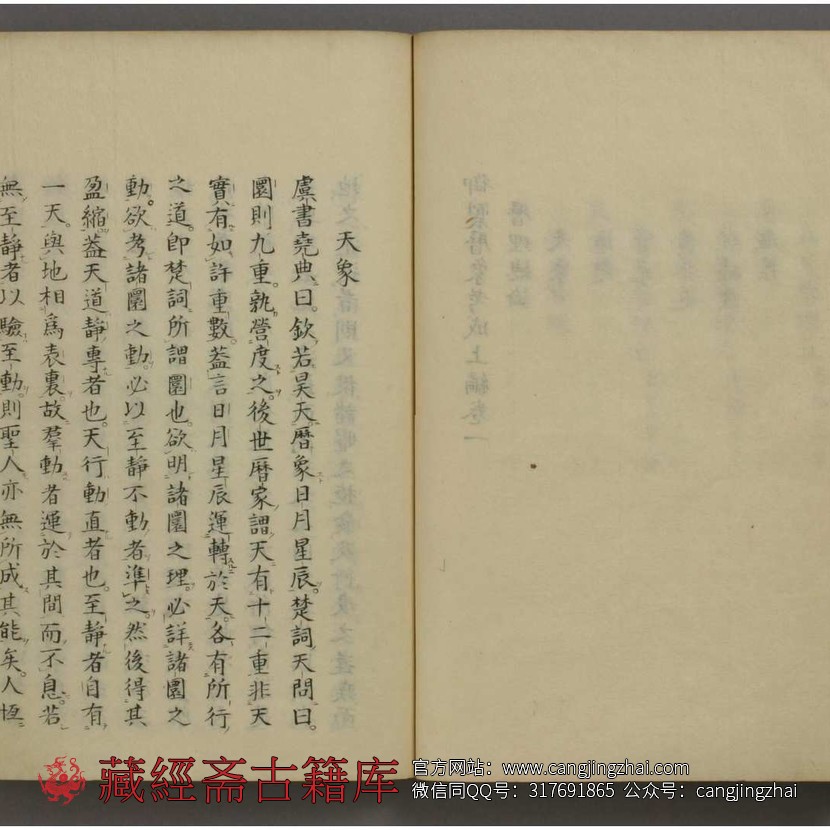 天象
虞書堯典曰。欽若昊天。曆象日月星辰。楚詞天問曰。
圜則九重。孰營度之。後世曆家。謂天有十二重。非天
實有如許重數。葢言日月星辰運轉於天。各有所行
之道。即楚詞所謂圜也。欲明諸圜之理。必詳諸圜之
動。欲考諸圜之動。必以至静不動者準之。然後得其
盈縮。葢天道静專者也。天行動直者也。至静者自有
一天。與地相爲表裏。故羣動者運於其間而不息。若
無至静者以驗至動。則聖人亦無所成其能矣。人恆
御製曆象考成上編卷一
曆理總論
藏經斋古籍库
官方网站：www.cangjingzhai.com
微信同QQ号：317691865 公众号：cangjingzhai